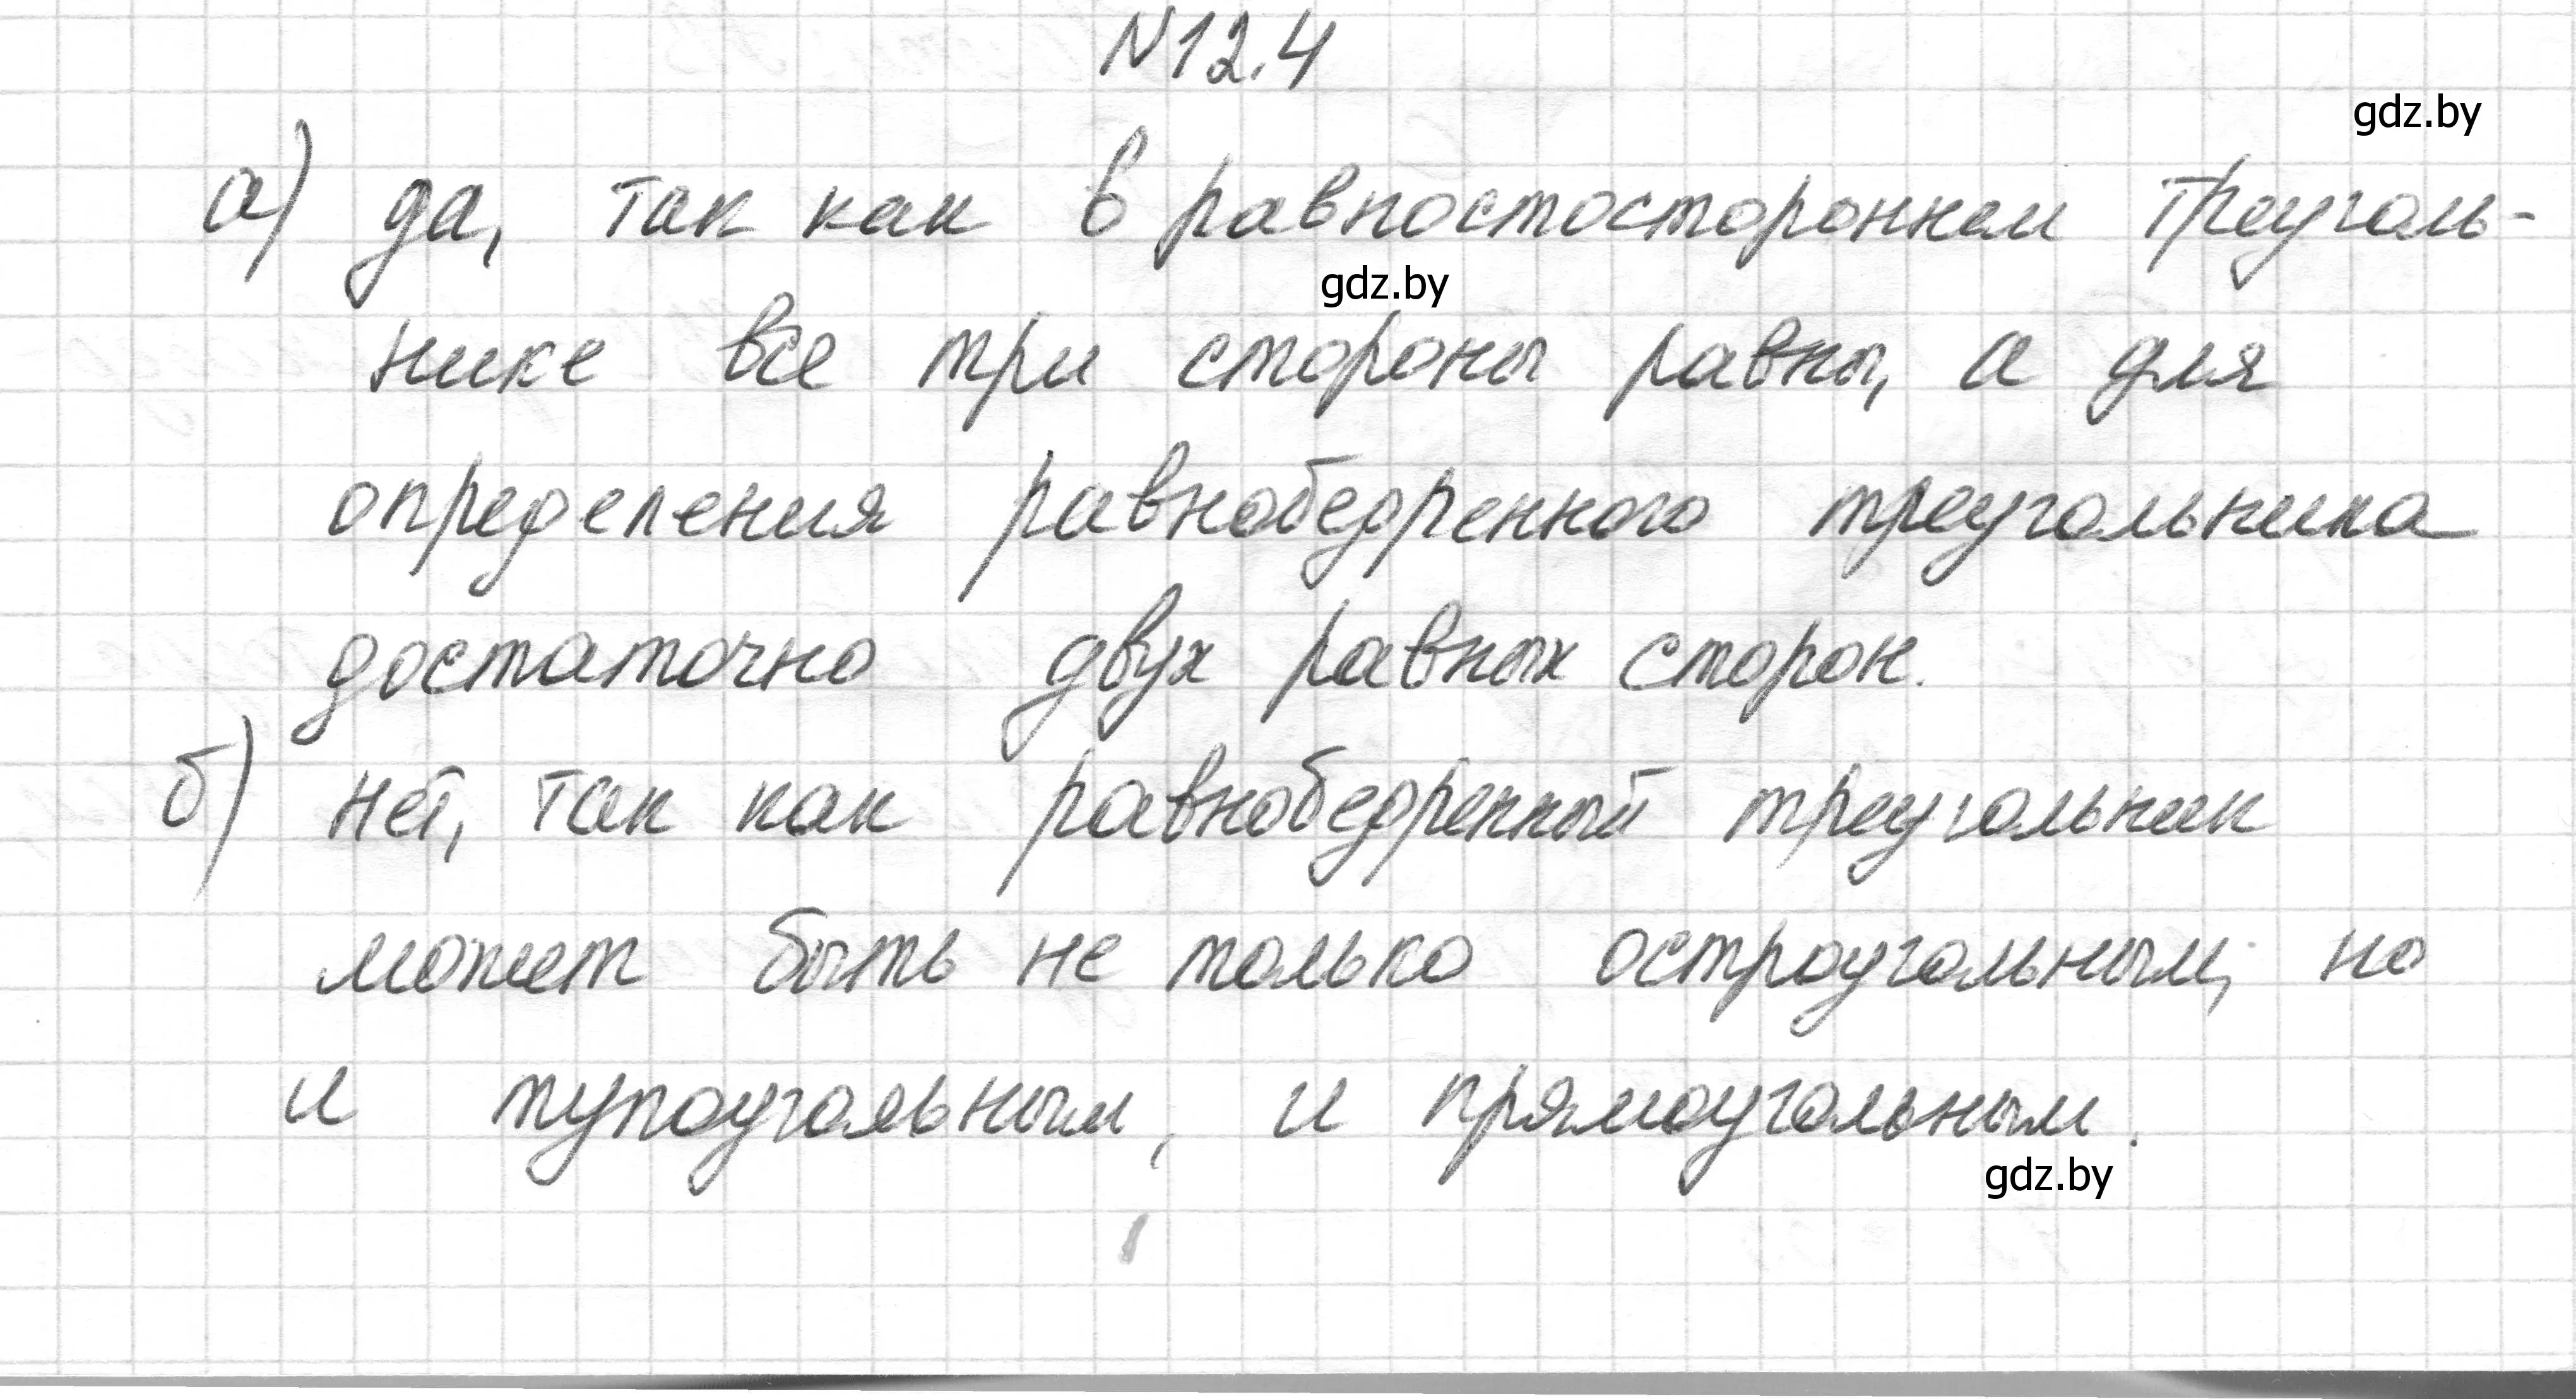 N12.4
gdz.by
а) да, так как в равностостороннем треуголь-
gdz.by
нике все три стороны равны, а для
определения равнобедренного треугольника
достаточно двух равных сторон.
б) нет, так как равнобедренный треугольник
может быть не только остроугольным, но
и тупоугольным, и прямоугольным.
gdz.by